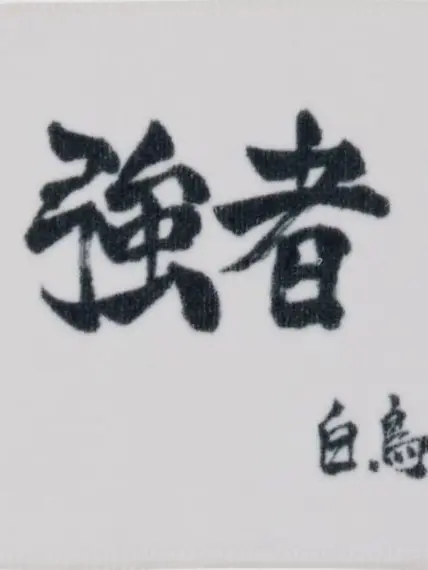 強者
白鳥